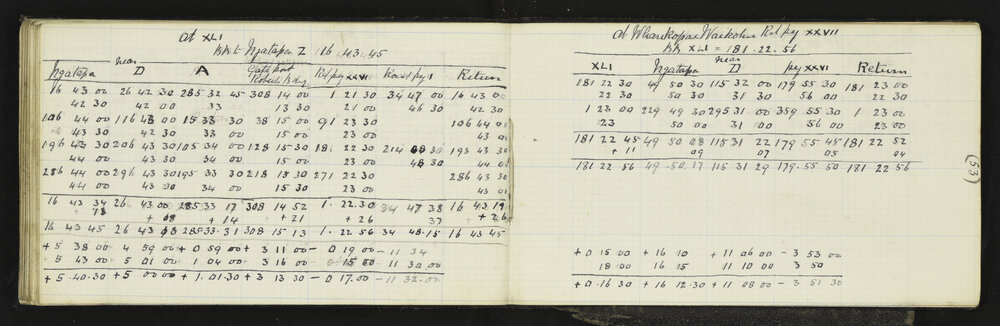 at XLI
Ngatapa Z 16.43.45
Ngatapa near D A Gate Post Rd pg XXVII Road pg I Return
16 43 00 26 42 30 285 32 45 308 14 00 1 21 30 34 47 00 16 43 00
42 30 42 00 33 13 30 21 00 46 30 42 30
106 44 00 116 43 00 15 33 30 38 15 00 91 23 30 106 44 00
43 30 42 30 33 00 15 00 23 00 43 00
196 43 30 206 43 30 105 34 00 128 15 30 181 22 30 214 193 43 30
44 00 43 30 34 00 15 00 23 00 48 30 44 00
286 44 00 296 43 30 195 33 30 218 15 30 271 22 30 286 43 30
44 00 43 30 34 00 15 30 23 00 43 00
16 43 34 26 43 00 285 33 17 308 14 52 1. 22.30 34 47 38 16 43 19
+ 08 + 14 + 21 + 26 37 + 26
16 43 45 26 43 285.33.31 308 15 13 1. 22 56 34 48.15 16 43 45
+ 5 38 00 4 59 00 + 0 59 00 + 3 11 00 - 0 19 00 - 11 34
5 43 00 5 01 00 1 04 00 3 16 00 - 0 15 00 11 30 00
+ 5.40.30 + 5 00 00 + 1.01.30 + 3 13 30 - 0 17.00 - 11 32.00
at Wharekopae Waikohu Rd pg XXVII
XLI = 181.22.56
XLI Ngatapa near D pg XXVI Return
181 22 30 49 50 30 115 32 00 179 55 30 181 23 00
22 30 50 30 31 30 56 00 22 30
1 23 00 229 49 30 295 31 00 359 55 30 1 23 00
23 50 00 31 00 56 00 23 00
181 22 45 49 50 08 115 31 22 179 55 45 181 22 52
+ 11 09 07 05 04
181 22 56 49 50.17 115 31 29 179.55 50 181 22 56
(53)
+ 0 15 00 + 16 10 + 11 06 00 - 3 53 00
18 00 16 15 11 10 00 3 50
+ 0.16 30 + 16 12.30 + 11 08 00 - 3 51 30